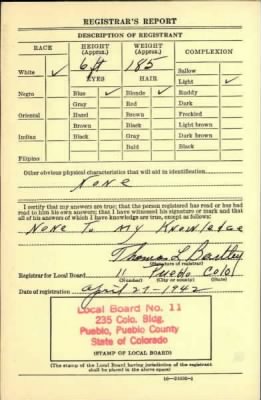 REGISTRAR'S REPORT
DESCRIPTION OF REGISTRANT
RACE HEIGHT (Approx.) WEIGHT (Approx.) COMPLEXION
White ✓ 6 ft 185 Sallow
EYES HAIR Light ✓
Negro Blue ✓ Blonde ✓ Ruddy
Gray Red Dark
Oriental Hazel Brown Freckled
Brown Black Light brown
Indian Black Gray Dark brown
Bald Black
Filipino
Other obvious physical characteristics that will aid in identification
None
I certify that my answers are true; that the person registered has read or has had
read to him his own answers; that I have witnessed his signature or mark and that
all of his answers of which I have knowledge are true, except as follows:
None To My Knowledge
Thomas L Bartley
(Signature of registrar)
Registrar for Local Board 11 Pueblo Colo.
(Number) (City or county) (State)
Date of registration April 27-1942
Local Board No. 11
235 Colo. Bldg.
Pueblo, Pueblo County
State of Colorado
(STAMP OF LOCAL BOARD)
(The stamp of the Local Board having jurisdiction of the registrant
shall be placed in the above space)